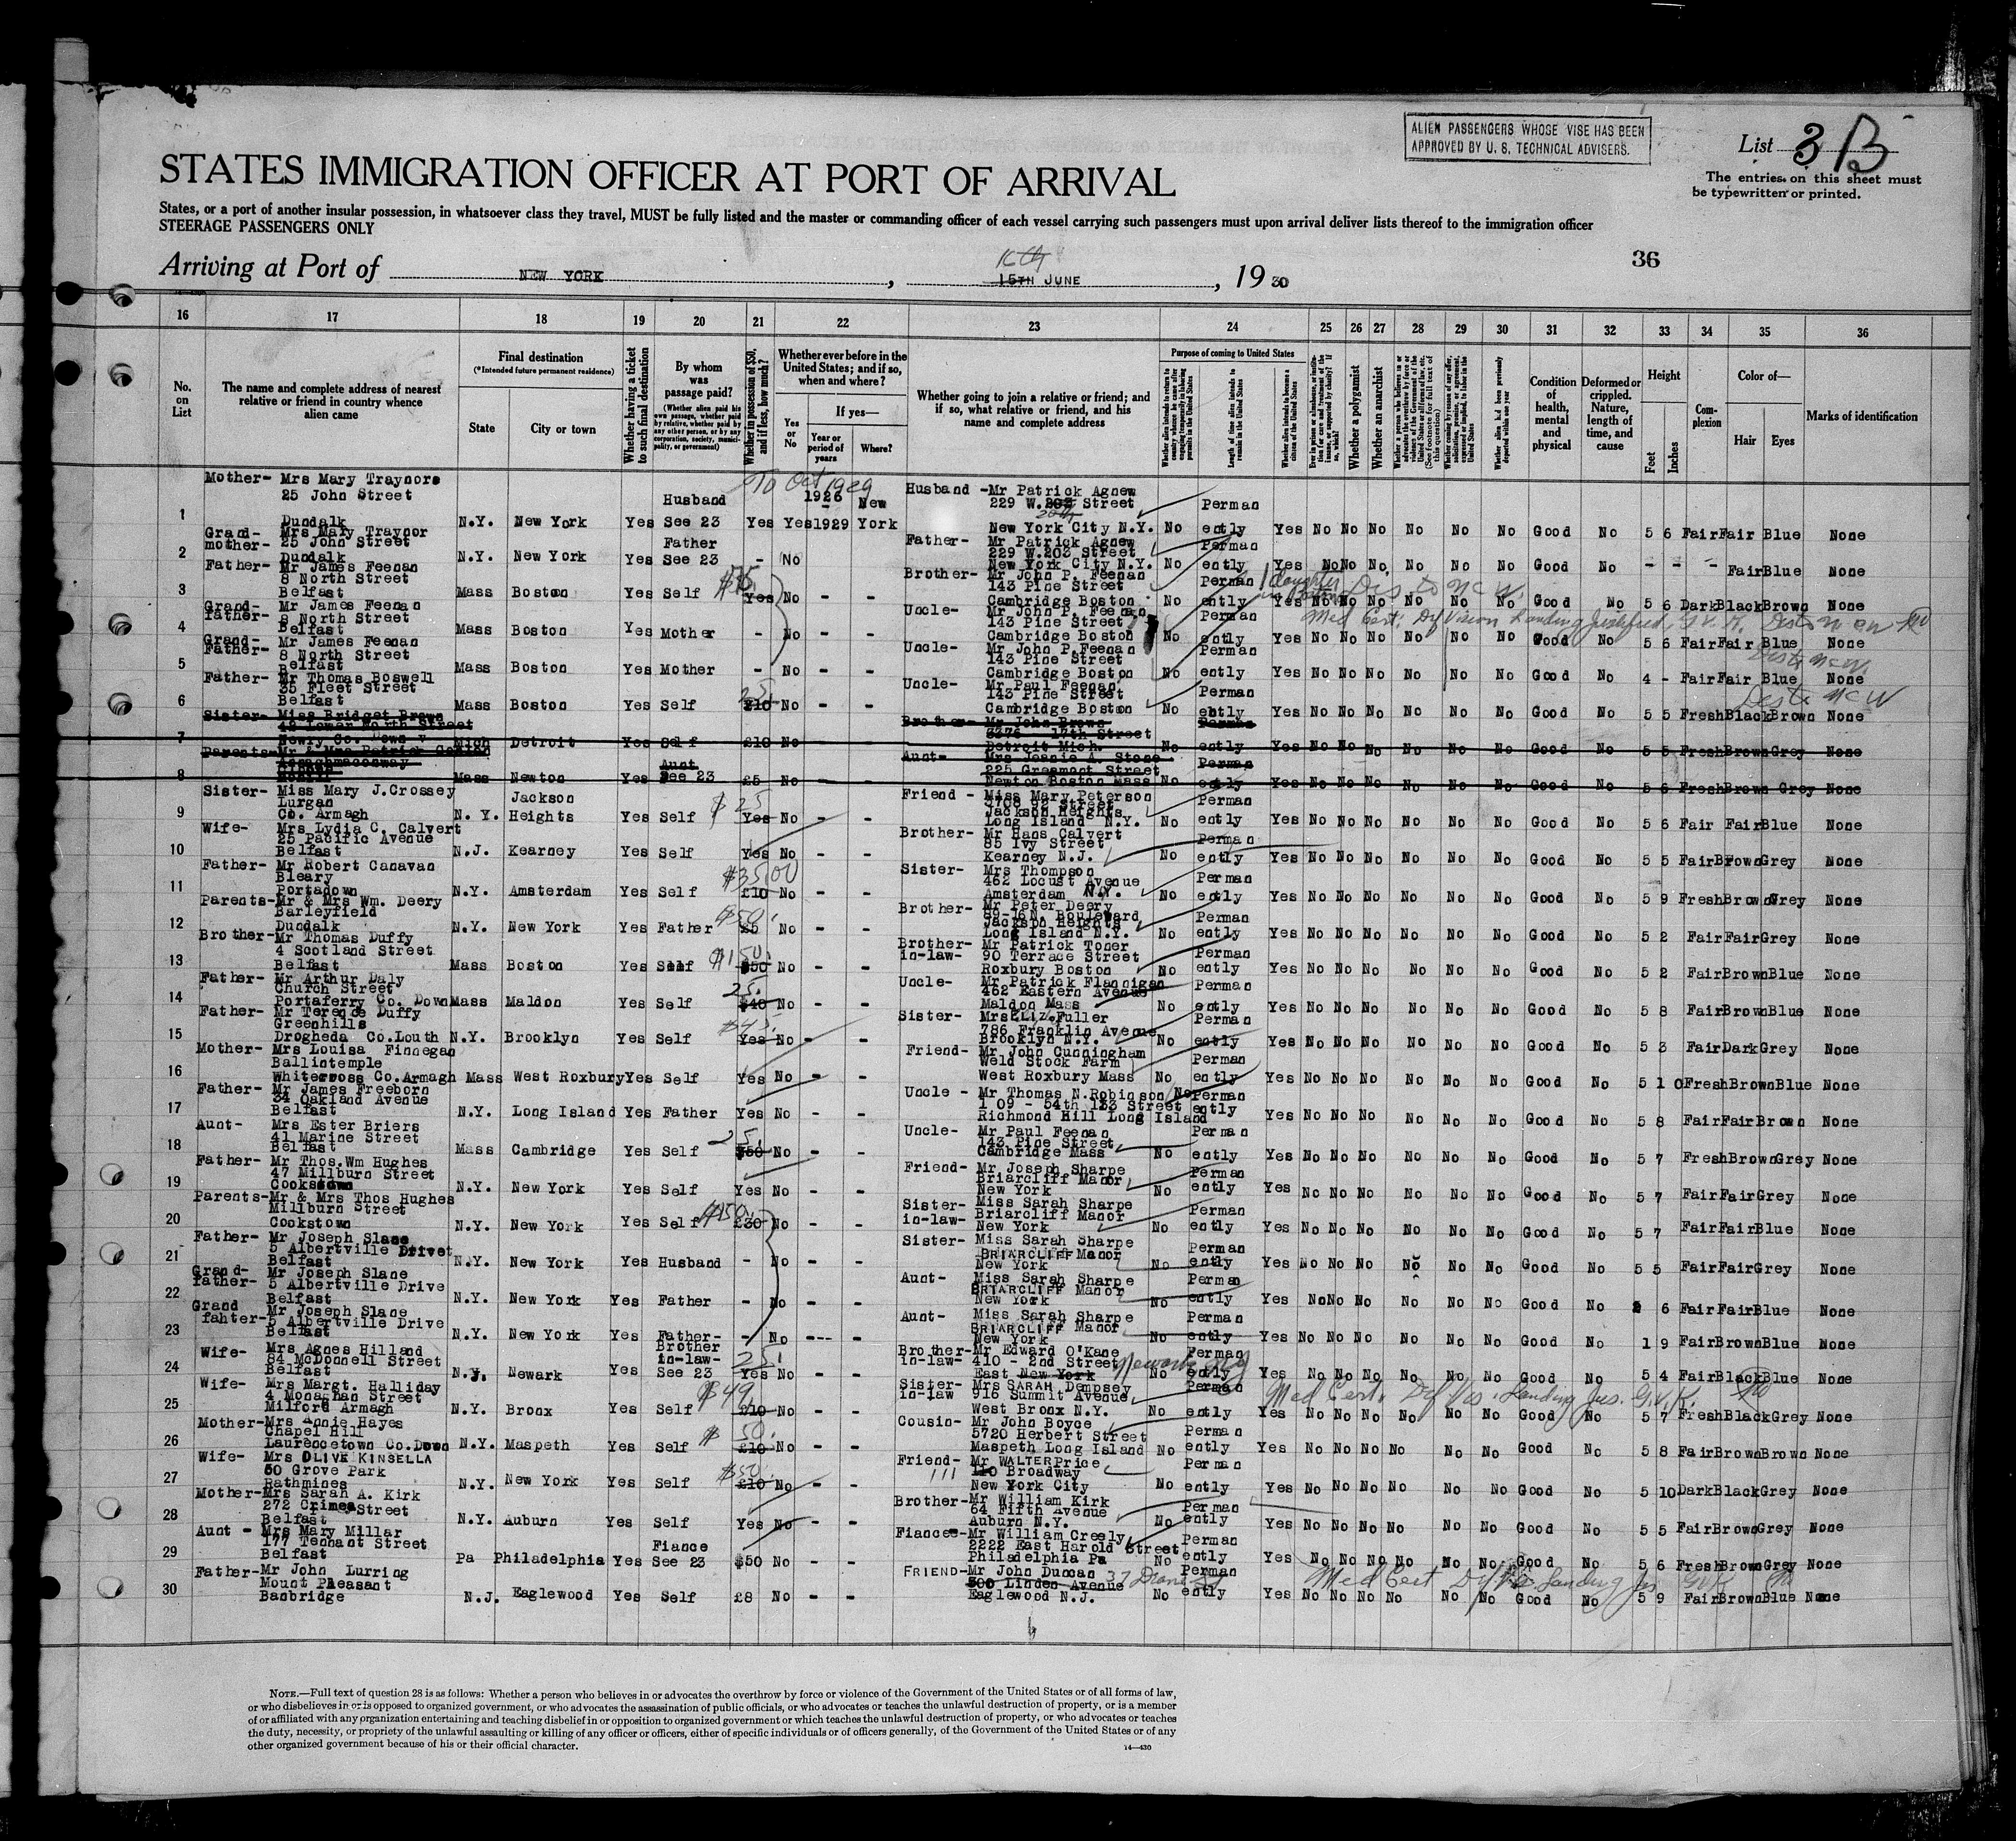 ALIEN PASSENGERS WHOSE VISE HAS BEEN
APPROVED BY U. S. TECHNICAL ADVISERS.
List 3 B
The entries on this sheet must
be typewritten or printed.
STATES IMMIGRATION OFFICER AT PORT OF ARRIVAL
States, or a port of another insular possession, in whatsoever class they travel, MUST be fully listed and the master or commanding officer of each vessel carrying such passengers must upon arrival deliver lists thereof to the immigration officer
STEERAGE PASSENGERS ONLY
36
Arriving at Port of NEW YORK, 16th 15TH JUNE, 19 30
16 17 18 19 20 21 22 23 24 25 26 27 28 29 30 31 32 33 34 35 36
No. on List
The name and complete address of nearest relative or friend in country whence alien came
Final destination
(*Intended future permanent residence)
State
City or town
Whether having a ticket to such final destination
By whom was passage paid?
(Whether alien paid his own passage, whether paid by relative, whether paid by any other person, or by any corporation, society, municipality, or government)
Whether in possession of $50, and if less, how much?
Whether ever before in the United States; and if so, when and where?
Yes or No
If yes—
Year or period of years
Where?
Whether going to join a relative or friend; and if so, what relative or friend, and his name and complete address
Purpose of coming to United States
Length of time alien intends to remain in the United States
Whether alien intends to become a citizen of the United States
Whether a polygamist
Whether an anarchist
Condition of health, mental and physical
Deformed or crippled. Nature, length of time, and cause
Height
Feet
Inches
Complexion
Color of—
Hair
Eyes
Marks of identification
To Oct 1929
1 Mother- Mrs Mary Traynore 25 John Street Dundalk N.Y. New York Yes Husband See 23 Yes Yes 1926 - 1929 New York Husband - Mr Patrick Agnew 229 W. 203 Street New York City N.Y. No Permanently Yes No No No No No No Good No 5 6 Fair Fair Blue None
2 Grand-mother- Mrs Mary Traynor 25 John Street Dundalk N.Y. New York Yes Father See 23 - No Father- Mr Patrick Agnew 229 W. 203 Street New York City N.Y. No Permanently Yes No No No No No No Good No - - - Fair Blue None
3 Father- Mr James Feenan 8 North Street Belfast Mass Boston Yes Self Yes No Brother- Mr John P. Feenan 143 Pine Street Cambridge Boston No Permanently Yes No No No No No No Good No 5 6 Dark Black Brown None
4 Grand-father- Mr James Feenan 8 North Street Belfast Mass Boston Yes Mother - No - - Uncle- Mr John P. Feenan 143 Pine Street Cambridge Boston No Permanently Yes No No No No No No Good No 5 6 Fair Fair Blue None
5 Grand-Father- Mr James Feenan 8 North Street Belfast Mass Boston Yes Mother - No - - Uncle- Mr John P. Feenan 143 Pine Street Cambridge Boston No Permanently Yes No No No No No No Good No 4 - Fair Fair Blue None
6 Father- Mr Thomas Boswell 35 Fleet Street Belfast Mass Boston Yes Self 25. £10 No - - Uncle- Mr Paul Feenan 143 Pine Street Cambridge Boston No Permanently Yes No No No No No No Good No 5 5 Fresh Black Brown None
7 Sister- Miss Bridget Brown 42 Lower North Street Newry Co. Down Mich Detroit Yes Self £10 No Brother- Mr John Brown 3376 - 17th Street Detroit Mich. No Permanently Yes No No No No No No Good No 5 5 Fresh Brown Grey None
8 Parents- Mr & Mrs Patrick Mass Newton Yes Aunt See 23 £5 No - - Aunt- Mrs Jennie A. Stone 225 Street Newton Boston Mass No Permanently Yes No No No No No No Good No 5 6 Fresh Brown Grey None
9 Sister- Miss Mary J. Crossey Lurgan Co. Armagh N. Y. Jackson Heights Yes Self $25 Yes No - - Friend - Miss Mary Peterson 3708 92 Street Jackson Heights Long Island N.Y. No Permanently Yes No No No No No No Good No 5 6 Fair Fair Blue None
10 Wife- Mrs Lydia C. Calvert 25 Pacific Avenue Belfast N.J. Kearney Yes Self Yes No - - Brother- Mr Hans Calvert 85 Ivy Street Kearney N.J. No Permanently Yes No No No No No No Good No 5 5 Fair Brown Grey None
11 Father- Mr Robert Canavan Bleary Portadown N.Y. Amsterdam Yes Self $35.00 £10 No - - Sister- Mrs Thompson 462 Locust Avenue Amsterdam N.Y. No Permanently Yes No No No No No No Good No 5 9 Fresh Brown Grey None
12 Parents- Mr & Mrs Wm. Deery Barleyfield Dundalk N.Y. New York Yes Father $50. £5 No - - Brother- Mr Peter Deery 89-16 N. Boulevard Jackson Heights Long Island N.Y. No Permanently Yes No No No No No No Good No 5 2 Fair Fair Grey None
13 Brother- Mr Thomas Duffy 4 Scotland Street Belfast Mass Boston Yes Self $150. $50 No - - Brother-in-law- Mr Patrick Toner 90 Terrace Street Roxbury Boston No Permanently Yes No No No No No No Good No 5 2 Fair Brown Blue None
14 Father- Mr Arthur Daly Church Street Portaferry Co. Down Mass Maldon Yes Self 25. $40 No - - Uncle- Mr Patrick Flannigan 462 Eastern Avenue Maldon Mass No Permanently Yes No No No No No No Good No 5 8 Fair Brown Blue None
15 Father- Mr Terence Duffy Greenhills Drogheda Co. Louth N.Y. Brooklyn Yes Self $45. Yes No - - Sister- Mrs ELIZ. Fuller 786 Franklin Avenue Brooklyn N.Y. No Permanently Yes No No No No No No Good No 5 3 Fair Dark Grey None
16 Mother- Mrs Louisa Finnegan Ballintemple Whitecross Co. Armagh Mass West Roxbury Yes Self Yes No - - Friend- Mr John Cunningham Weld Stock Farm West Roxbury Mass No Permanently Yes No No No No No No Good No 5 10 Fresh Brown Blue None
17 Father- Mr James Freeborn 34 Oakland Avenue Belfast N.Y. Long Island Yes Father Yes No - - Uncle - Mr Thomas N. Robinson 1 09 - 54th 133 Street Richmond Hill Long Island No Permanently Yes No No No No No No Good No 5 8 Fair Fair Brown None
18 Aunt- Mrs Ester Briers 41 Marine Street Belfast Mass Cambridge Yes Self 25. $50 No - - Uncle- Mr Paul Feenan 143 Pine Street Cambridge Mass No Permanently Yes No No No No No No Good No 5 7 Fresh Brown Grey None
19 Father- Mr Thos. Wm Hughes 47 Millburn Street Cookstown N.Y. New York Yes Self Yes No - - Friend- Mr Joseph Sharpe Briarcliff Manor New York No Permanently Yes No No No No No No Good No 5 7 Fair Fair Grey None
20 Parents- Mr & Mrs Thos Hughes Millburn Street Cookstown N.Y. New York Yes Self $150. £30 No - - Sister-in-law- Miss Sarah Sharpe Briarcliff Manor New York No Permanently Yes No No No No No No Good No 5 7 Fair Fair Blue None
21 Father- Mr Joseph Slane 5 Albertville Drivet Belfast N.Y. New York Yes Husband - No - - Sister- Miss Sarah Sharpe BRIARCLIFF Manor New York No Permanently Yes No No No No No No Good No 5 5 Fair Fair Grey None
22 Grand-father- Mr Joseph Slane 5 Albertville Drive Belfast N.Y. New York Yes Father - No - - Aunt- Miss Sarah Sharpe BRIARCLIFF Manor New York No Permanently Yes No No No No No No Good No 6 Fair Fair Blue None
23 Grand fahter- Mr Joseph Slane 5 Albertville Drive Belfast N.Y. New York Yes Father- - No --- - Aunt- Miss Sarah Sharpe BRIARCLIFF Manor New York No Permanently Yes No No No No No No Good No 1 9 Fair Brown Blue None
24 Wife- Mrs Agnes Hilland 84 McDonnell Street Belfast N.J. Newark Yes Brother in-law- See 23 25. Yes No - - Brother-in-law- Mr Edward O'Kane 410 - 2nd Street East New York Newark NJ No Permanently Yes No No No No No No Good No 5 4 Fair Black Blue None
25 Wife- Mrs Margt. Halliday 4 Monaghan Street Milford Armagh N.Y. Bronx Yes Self $49 £10 No - - Sister-in-law Mrs SARAH Dempsey 916 Summit Avenue West Bronx N.Y. No Permanently Yes No No No No No No Good No 5 7 Fresh Black Grey None
Med Cert. Def Vis. Landing Jus. G.V.K.
26 Mother- Mrs Annie Hayes Chapel Hill Laurencetown Co. Down N.Y. Maspeth Yes Self $50. £10 No - - Cousin- Mr John Boyce 5720 Herbert Street Maspeth Long Island No Permanently Yes No No No No No No Good No 5 8 Fair Brown Brown None
27 Wife- Mrs OLIVE KINSELLA 50 Grove Park Rathmines N.Y. New York Yes Self $50. £10 No - - Friend- Mr WALTER Price 111 110 Broadway New York City No Permanently Yes No No No No No No Good No 5 10 Dark Black Grey None
28 Mother- Mrs Sarah A. Kirk 272 Crimea Street Belfast N.Y. Auburn Yes Self Yes No - - Brother- Mr William Kirk 64 Fifth Avenue Auburn N.Y. No Permanently Yes No No No No No No Good No 5 5 Fair Brown Grey None
29 Aunt - Mrs Mary Millar 177 Tennant Street Belfast Pa Philadelphia Yes Fiance See 23 $50 No - - Fiancee- Mr William Creely 2222 East Harold Street Philadelphia Pa No Permanently Yes No No No No No No Good No 5 6 Fresh Brown Grey None
30 Father- Mr John Lurring Mount Pleasant Banbridge N.J. Eaglewood Yes Self £8 No - - FRIEND- Mr John Duncan 500 Linden Avenue Eaglewood N.J. No Permanently Yes No No No No No No Good No 5 9 Fair Brown Blue None
NOTE.—Full text of question 28 is as follows: Whether a person who believes in or advocates the overthrow by force or violence of the Government of the United States or of all forms of law,
or who disbelieves in or is opposed to organized government, or who advocates the assassination of public officials, or who advocates or teaches the unlawful destruction of property, or is a member
of or affiliated with any organization entertaining and teaching disbelief in or opposition to organized government or which teaches the unlawful destruction of property, or who advocates or teaches
the duty, necessity, or propriety of the unlawful assaulting or killing of any officer or officers, either of specific individuals or of officers generally, of the Government of the United States or of any
other organized government because of his or their official character.
14—430